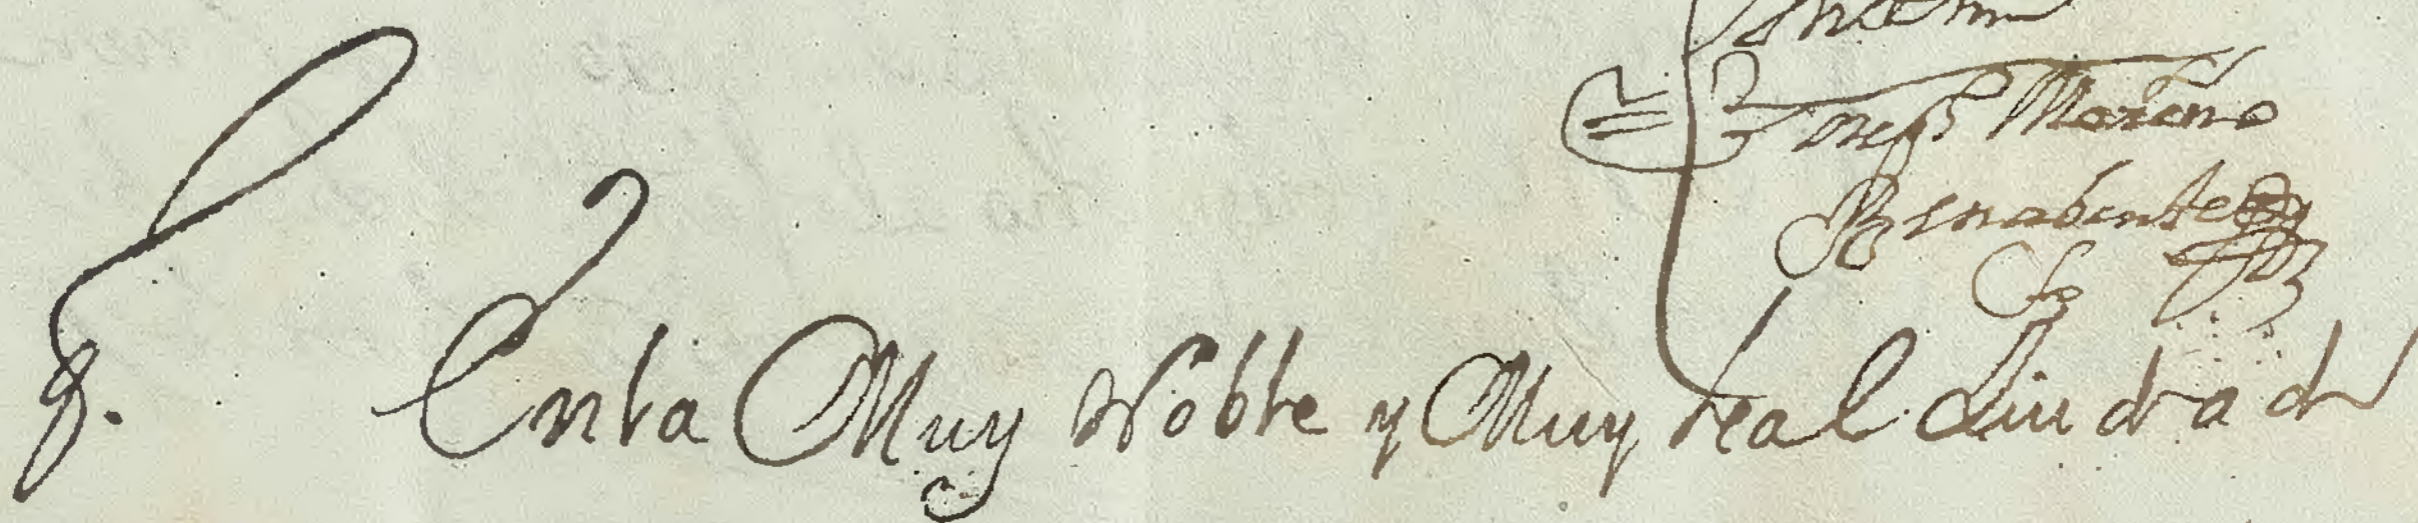 Antem
Moreno
Benabente
Enla Muy Noble y Muy Leal Ciudad